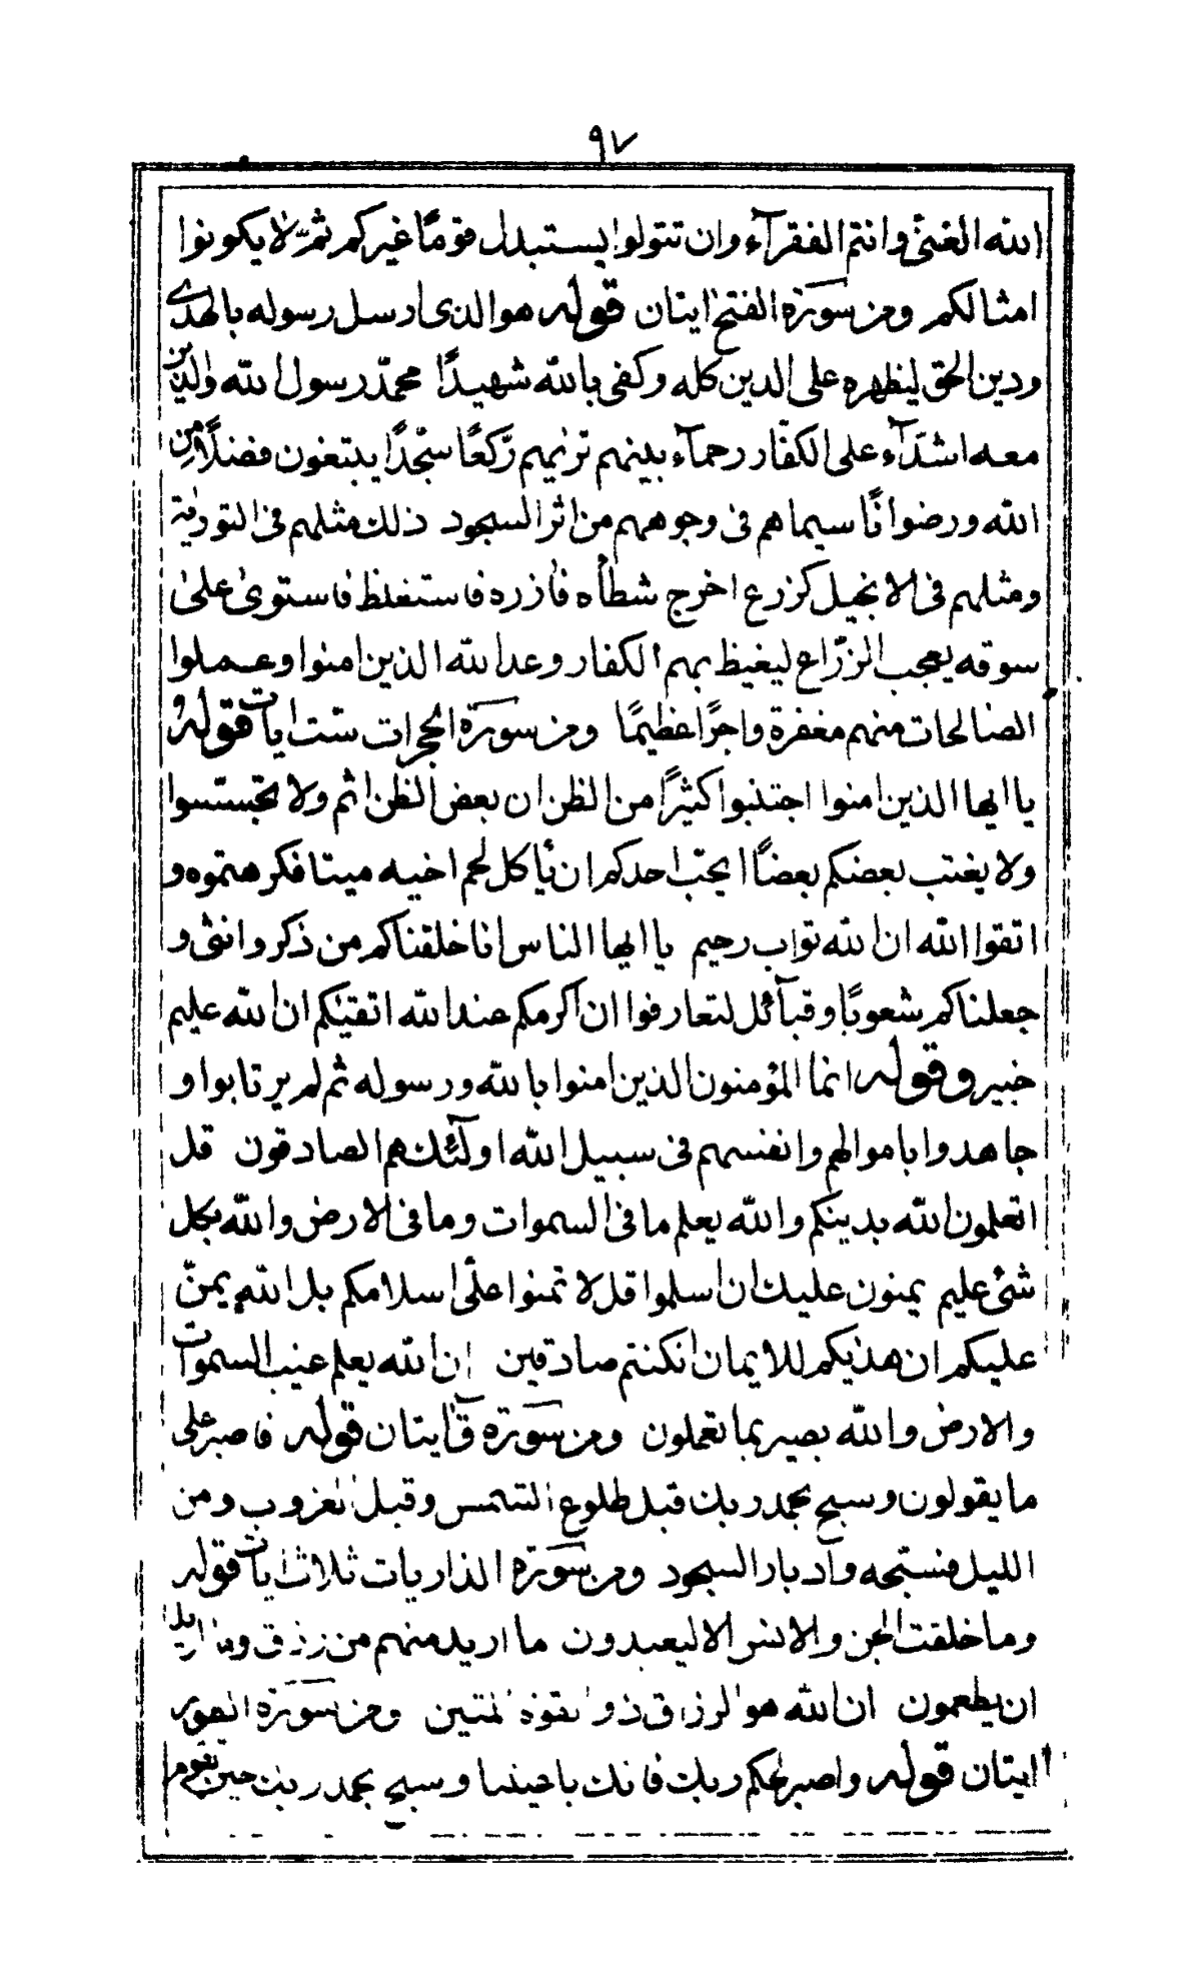 ٩٧
الله الغنىّ وانتم الفقرآء وان تتولوا يستبدل قومًا غيركم ثمّ لا يكونوا
امثالكم ومن سورة الفتح ايتان قوله هو الذى ارسل رسوله بالهدى
ودين الحق ليظهره على الدين كله وكفى بالله شهيدًا محمّد رسول الله والذين
معه اشدّآء على الكفّار رحمآء بينهم تريٰهم ركّعًا سجّدًا يبتغون فضلًا من
الله ورضوانًا سيماهم فى وجوههم من اثر السجود ذلك مثلهم فى التورية
ومثلهم فى الانجيل كزرع اخرج شطأه فازره فاستغلظ فاستوى على
سوقه يعجب الزرّاع ليغيظ بهم الكفار وعد الله الذين امنوا وعملوا
الصالحات منهم مغفرة واجرًا عظيمًا ومن سورة الحجرات ستّ ايات قوله
يا ايها الذين امنوا اجتنبوا كثيرًا من الظن ان بعض الظن اثم ولا تجسّسوا
ولا يغتب بعضكم بعضًا ايحبّ احدكم ان يأكل لحم اخيه ميتا فكرهتموه و
اتقوا الله ان الله تواب رحيم يا ايها الناس انا خلقناكم من ذكر وانثى و
جعلناكم شعوبًا وقبآئل لتعارفوا ان اكرمكم عند الله اتقيٰكم ان الله عليم
خبير وقوله انما المؤمنون الذين امنوا بالله ورسوله ثم لم يرتابوا و
جاهدوا باموالهم وانفسهم فى سبيل الله اولٓئك هم الصادقون قل
اتعلمون الله بدينكم والله يعلم ما فى السموات وما فى الارض والله بكل
شئ عليم يمنون عليك ان اسلموا قل لا تمنوا علىّ اسلامكم بل الله يمنّ
عليكم ان هديٰكم للايمان ان كنتم صادقين ان الله يعلم غيب السموات
والارض والله بصير بما تعملون ومن سورة قٓ ايتان قوله فاصبر على
ما يقولون وسبح بحمد ربك قبل طلوع الشمس وقبل الغروب ومن
الليل فسبّحه وادبار السجود ومن سورة الذاريات ثلاث ايات قوله
وما خلقت الجن والانس الا ليعبدون ما اريد منهم من رزق وما اريد
ان يطعمون ان الله هو الرزاق ذو القوة المتين ومن سورة الطور
ايتان قوله واصبر لحكم ربك فانك باعيننا وسبح بحمد ربك حين تقوم